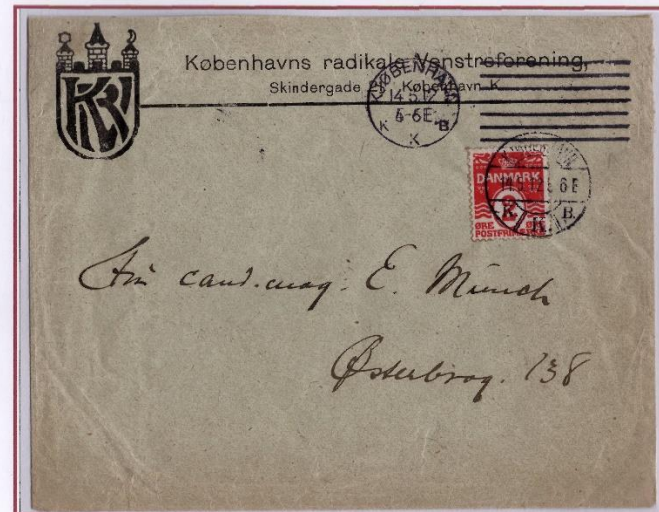 KRV
Københavns radikale Venstreforening,
Skindergade København K.
KØBENHAVN
14.5.12
5-6E
K K B
DANMARK
ØRE ØRE
POSTFRIM.
6E
K. K. B.
cand. mag. E. Münch
Østerbrog. 138